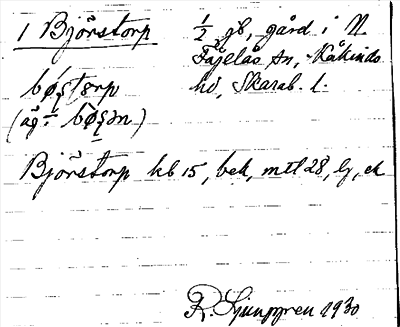 1 Björstorp ½ gb, gård i N.
Fågelås sn, Kåkinds
hd, Skarab. l.
bøʂtərp
(äg. bøʂən)
Björstorp kb 15, bek, mtl 28, lj, ek
R. Ljunggren 1930